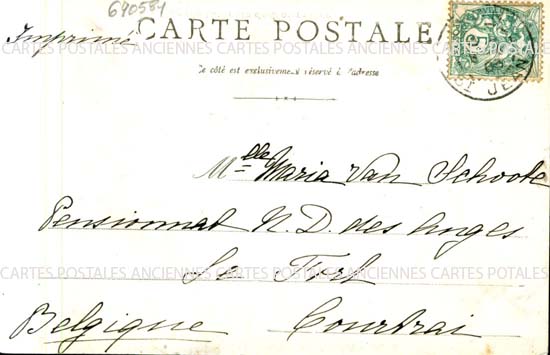 640584
Imprimé
CARTE POSTALE
Ce côté est exclusivement réservé à l'adresse
ST JEAN
CARTES POSTALES ANCIENNES CARTES POSTALES ANCIENNES CARTES POSTALES
Mlle Maria Van Schoote
Pensionnat N. D. des Anges
CARTES POSTALES ANCIENNES CARTES POSTALES ANCIENNES CARTES POTALES
Le Fort
Belgique Courtrai